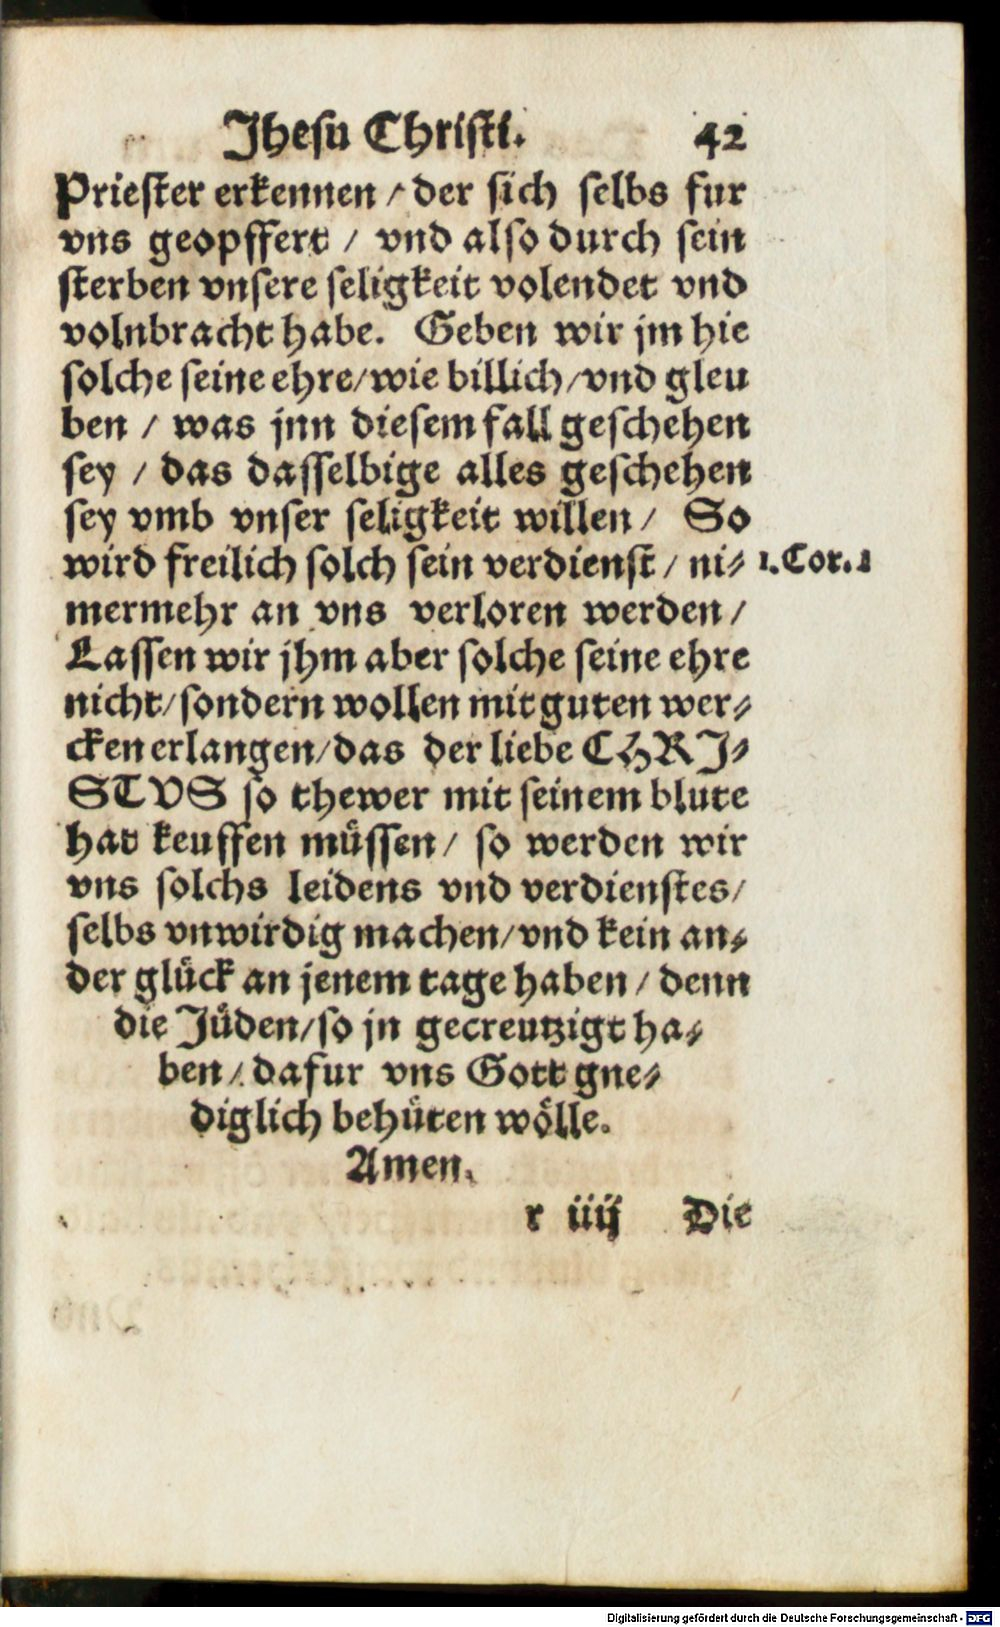 Jhesu Christi. 42
Priester erkennen / der sich selbs fur
vns geopffert / vnd also durch sein
sterben vnsere seligkeit volendet vnd
volnbracht habe. Geben wir jm hie
solche seine ehre/wie billich/vnd gleu
ben / was jnn diesem fall geschehen
sey / das dasselbige alles geschehen
sey vmb vnser seligkeit willen / So
wird freilich solch sein verdienst / ni- 1.Cor.1
mermehr an vns verloren werden /
Lassen wir jhm aber solche seine ehre
nicht/sondern wollen mit guten wer-
cken erlangen/das der liebe CHRJ-
STVS so thewer mit seinem blute
hat keuffen müssen / so werden wir
vns solchs leidens vnd verdienstes/
selbs vnwirdig machen/vnd kein an-
der glück an jenem tage haben / denn
die Jüden/so jn gecreutzigt ha-
ben / dafur vns Gott gne-
diglich behüten wölle.
Amen.
r iiij Die
Digitalisierung gefördert durch die Deutsche Forschungsgemeinschaft - DFG